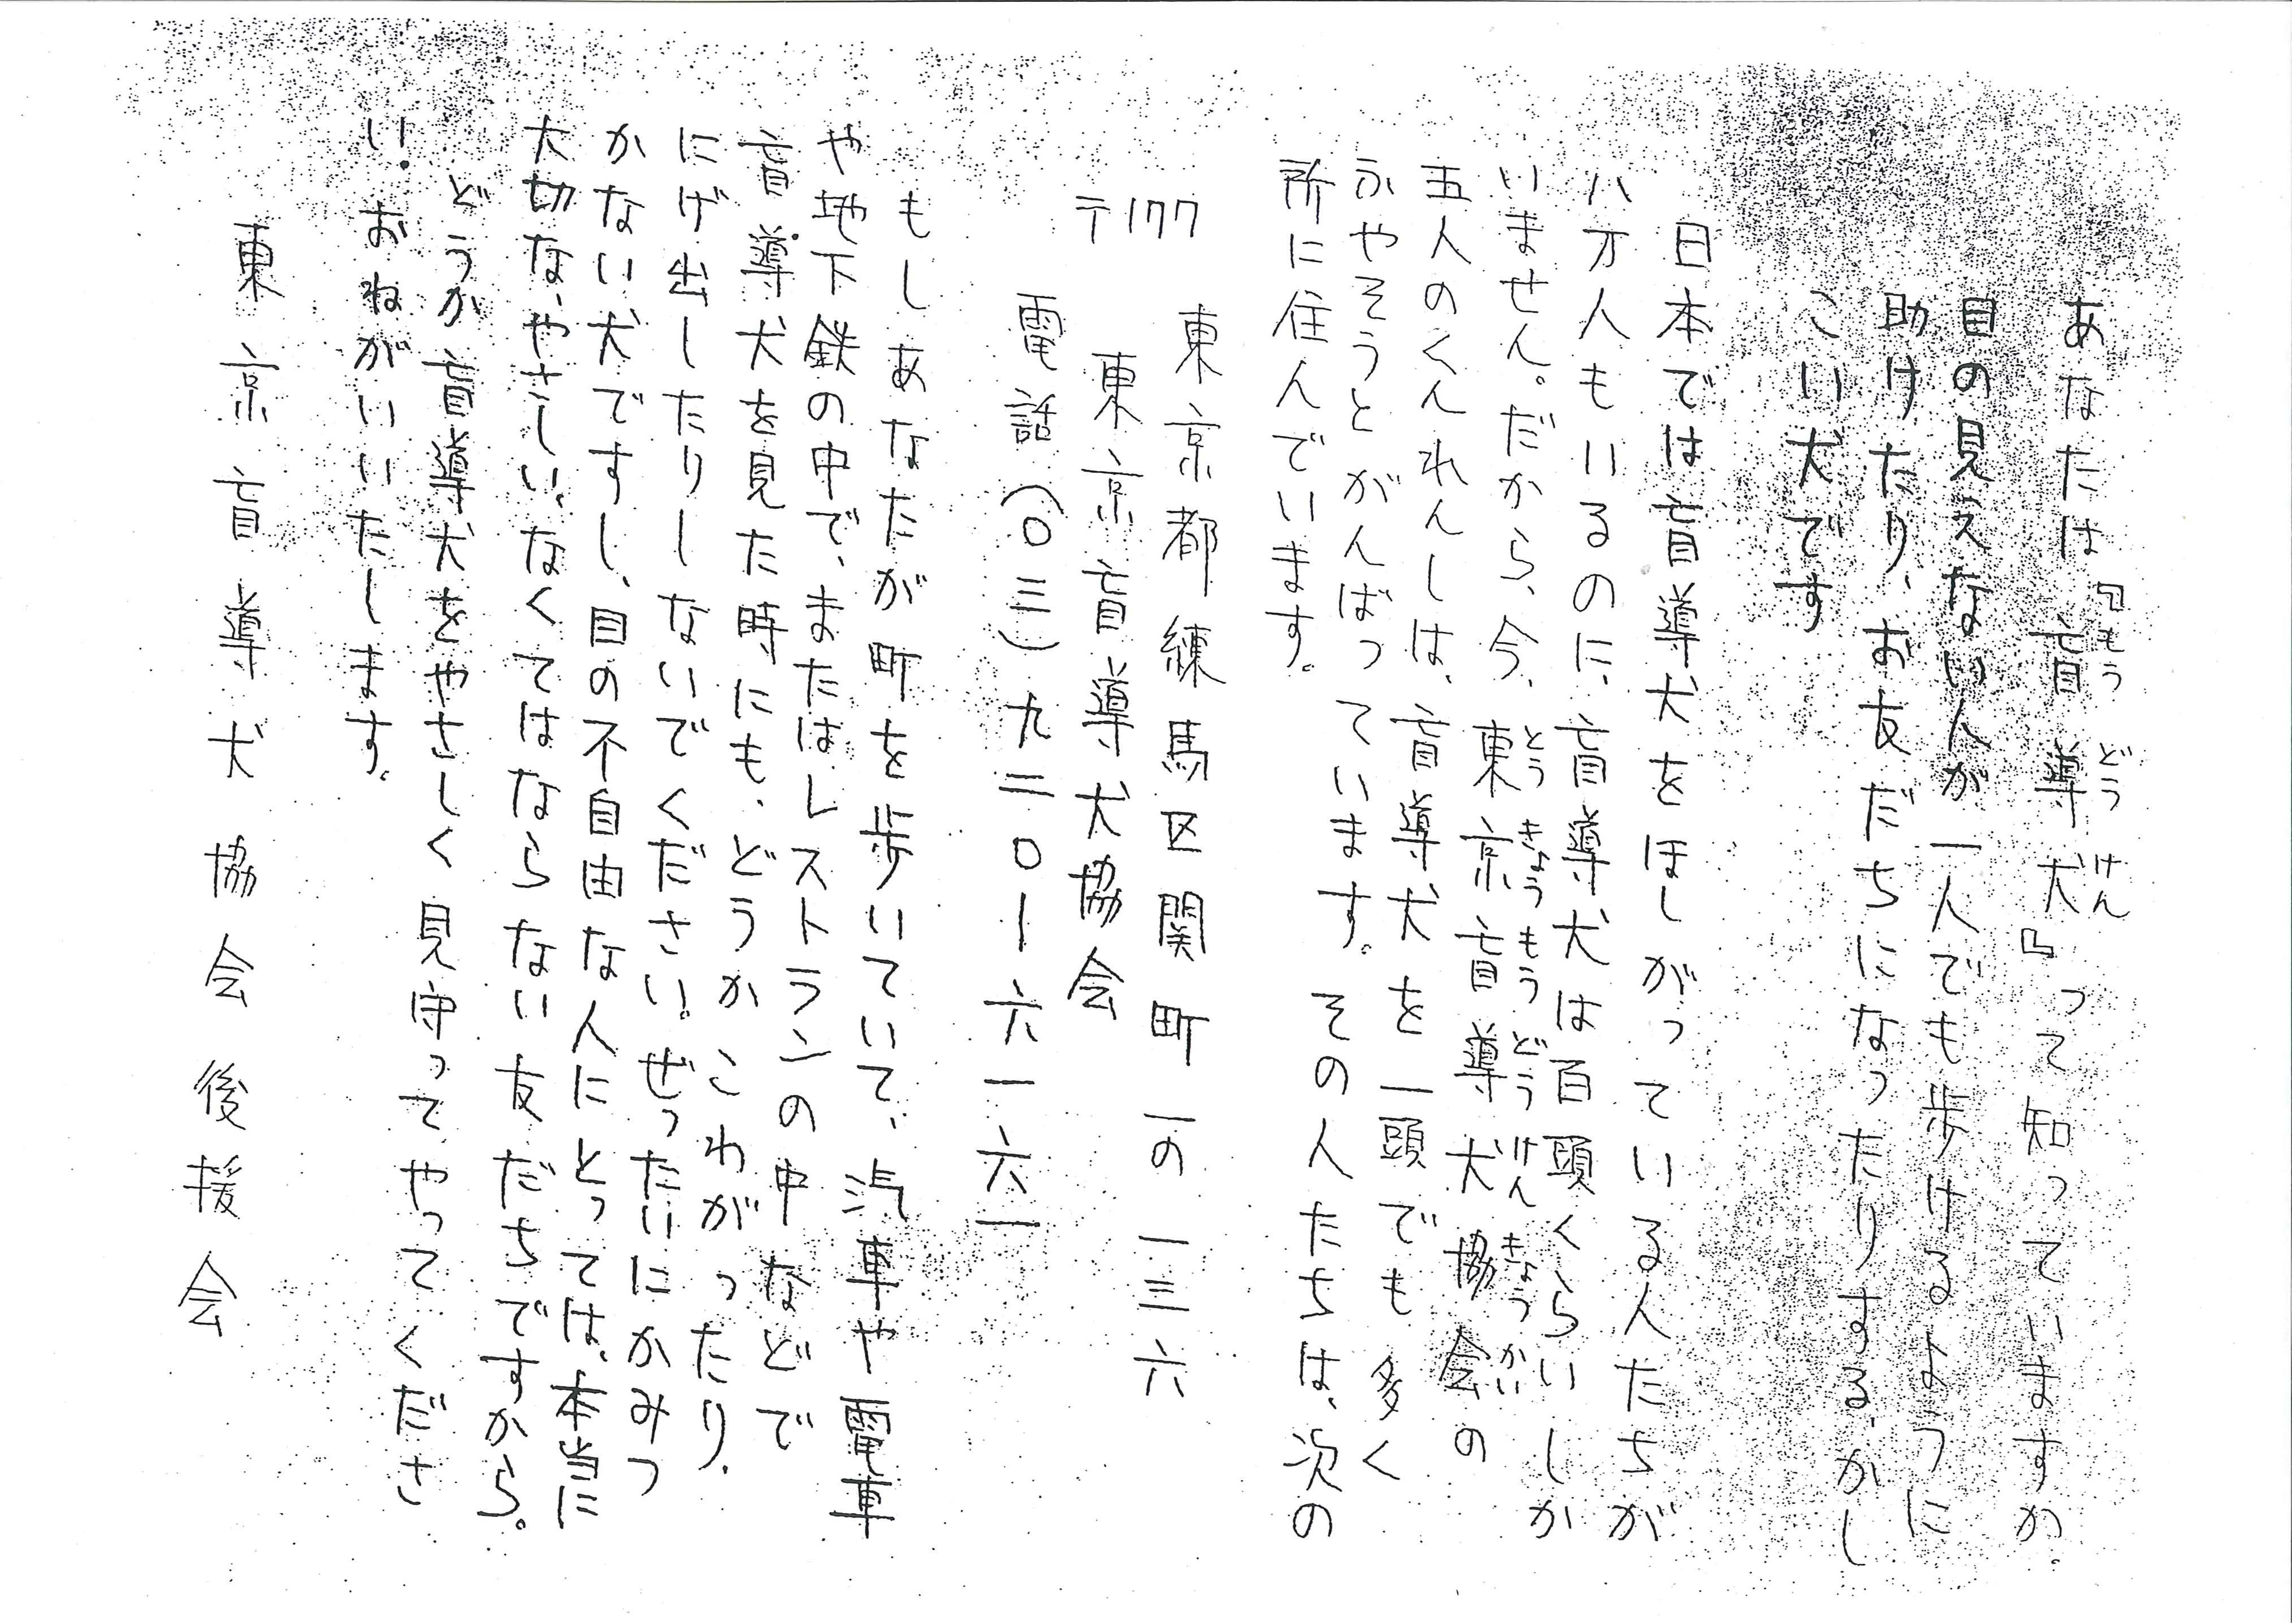 あなたは『盲導犬』って知っていますか。
もう どう けん
目の見えない人が一人でも歩けるように
助けたり、お友だちになったりする、かし
こい犬です
日本では盲導犬をほしがっている人たちが
八万人もいるのに、盲導犬は百頭くらいしか
いません。だから、今、東京盲導犬協会の
とう きょう もう どう けん きょう かい
五人のくんれんしは、盲導犬を一頭でも多く
ふやそうとがんばっています。その人たちは、次の
所に住んでいます。
〒177 東京都練馬区関町一の一三六
東京盲導犬協会
電話(〇三)九二〇ー六一六一
もしあなたが町を歩いていて、汽車や電車
や地下鉄の中で、またはレストランの中などで
盲導犬を見た時にも、どうかこわがったり、
にげ出したりしないでください。ぜったいにかみつ
かない犬ですし、目の不自由な人にとっては、本当に
大切な、やさしい、なくてはならない友だちですから。
どうか盲導犬をやさしく見守ってやってくださ
い。おねがいいたします。
東京盲導犬協会後援会